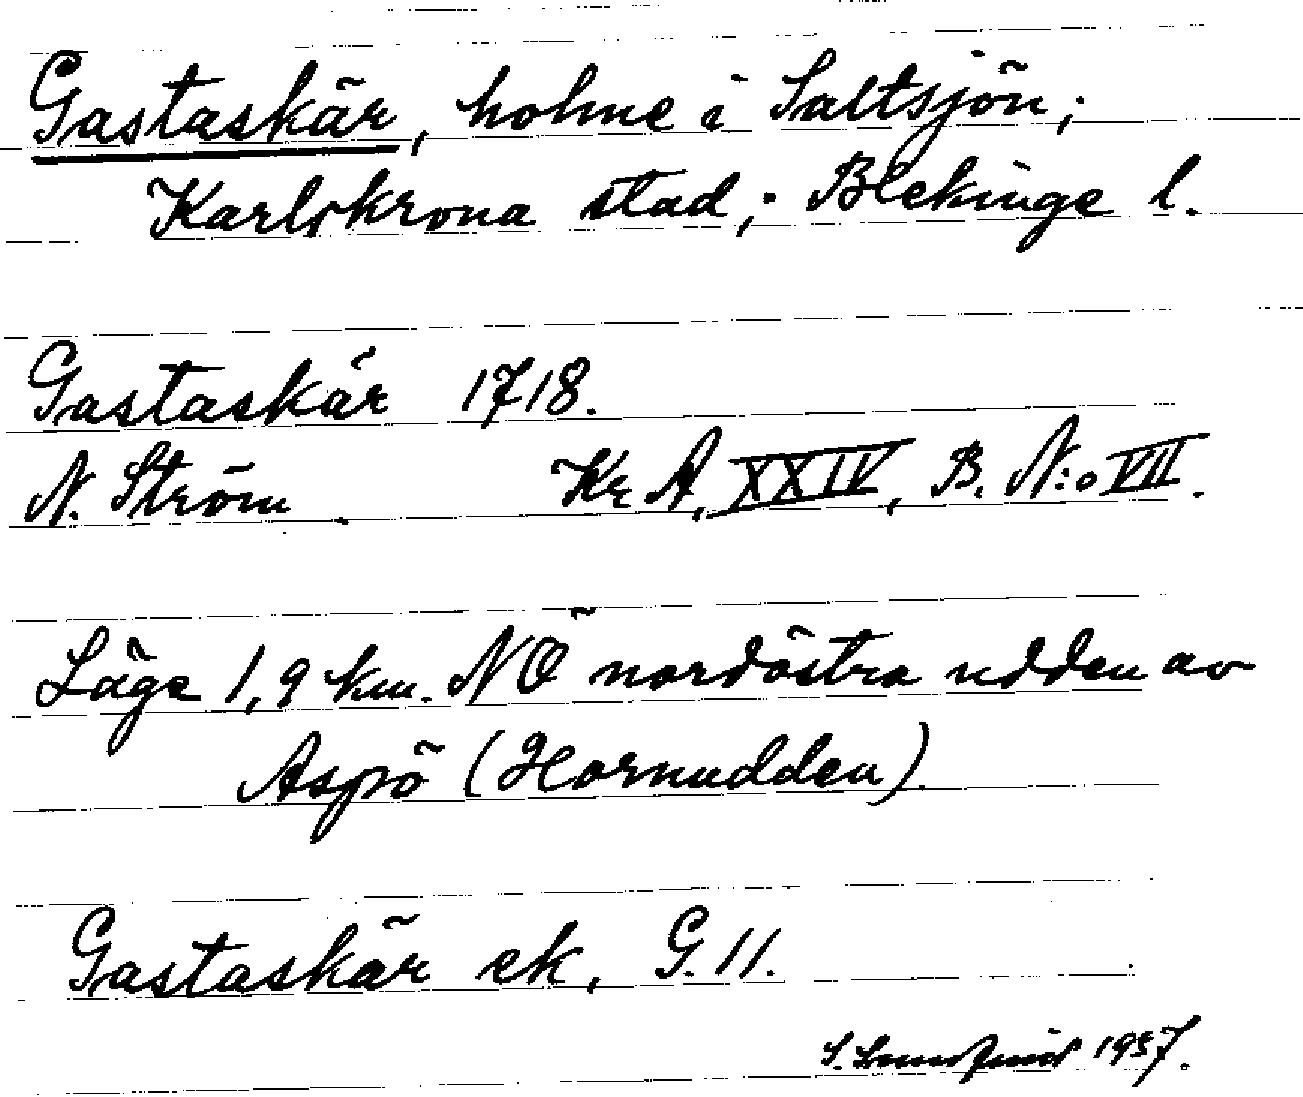 Gastaskär, holme i Saltsjön;
Karlskrona stad; Blekinge l.
Gastaskär 1718.
N. Ström Kr A, XXIV, B. N:o VII.
Läge 1,9 km. NÖ nordöstra udden av
Aspö (Hornudden).
Gastaskär ek, G. 11.
S. 1957.